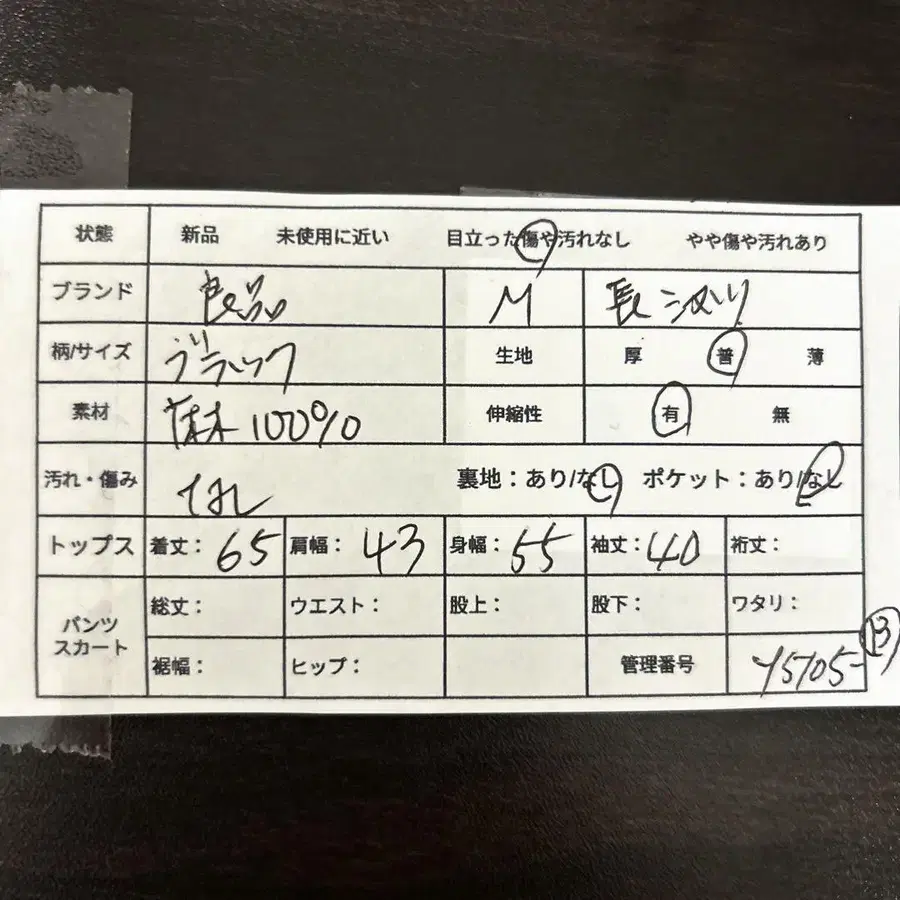 状態 新品 未使用に近い 目立った傷や汚れなし やや傷や汚れあり
ブランド 良品 M 長
柄/サイズ ブラック 生地 厚 普 薄
素材 麻 100% 伸縮性 有 無
汚れ・傷み なし 裏地：あり/なし ポケット：あり/なし
トップス 着丈： 65 肩幅： 43 身幅： 55 袖丈： 40 裄丈：
パンツ スカート 総丈： ウエスト： 股上： 股下： ワタリ：
裾幅： ヒップ： 管理番号 Y5705-13